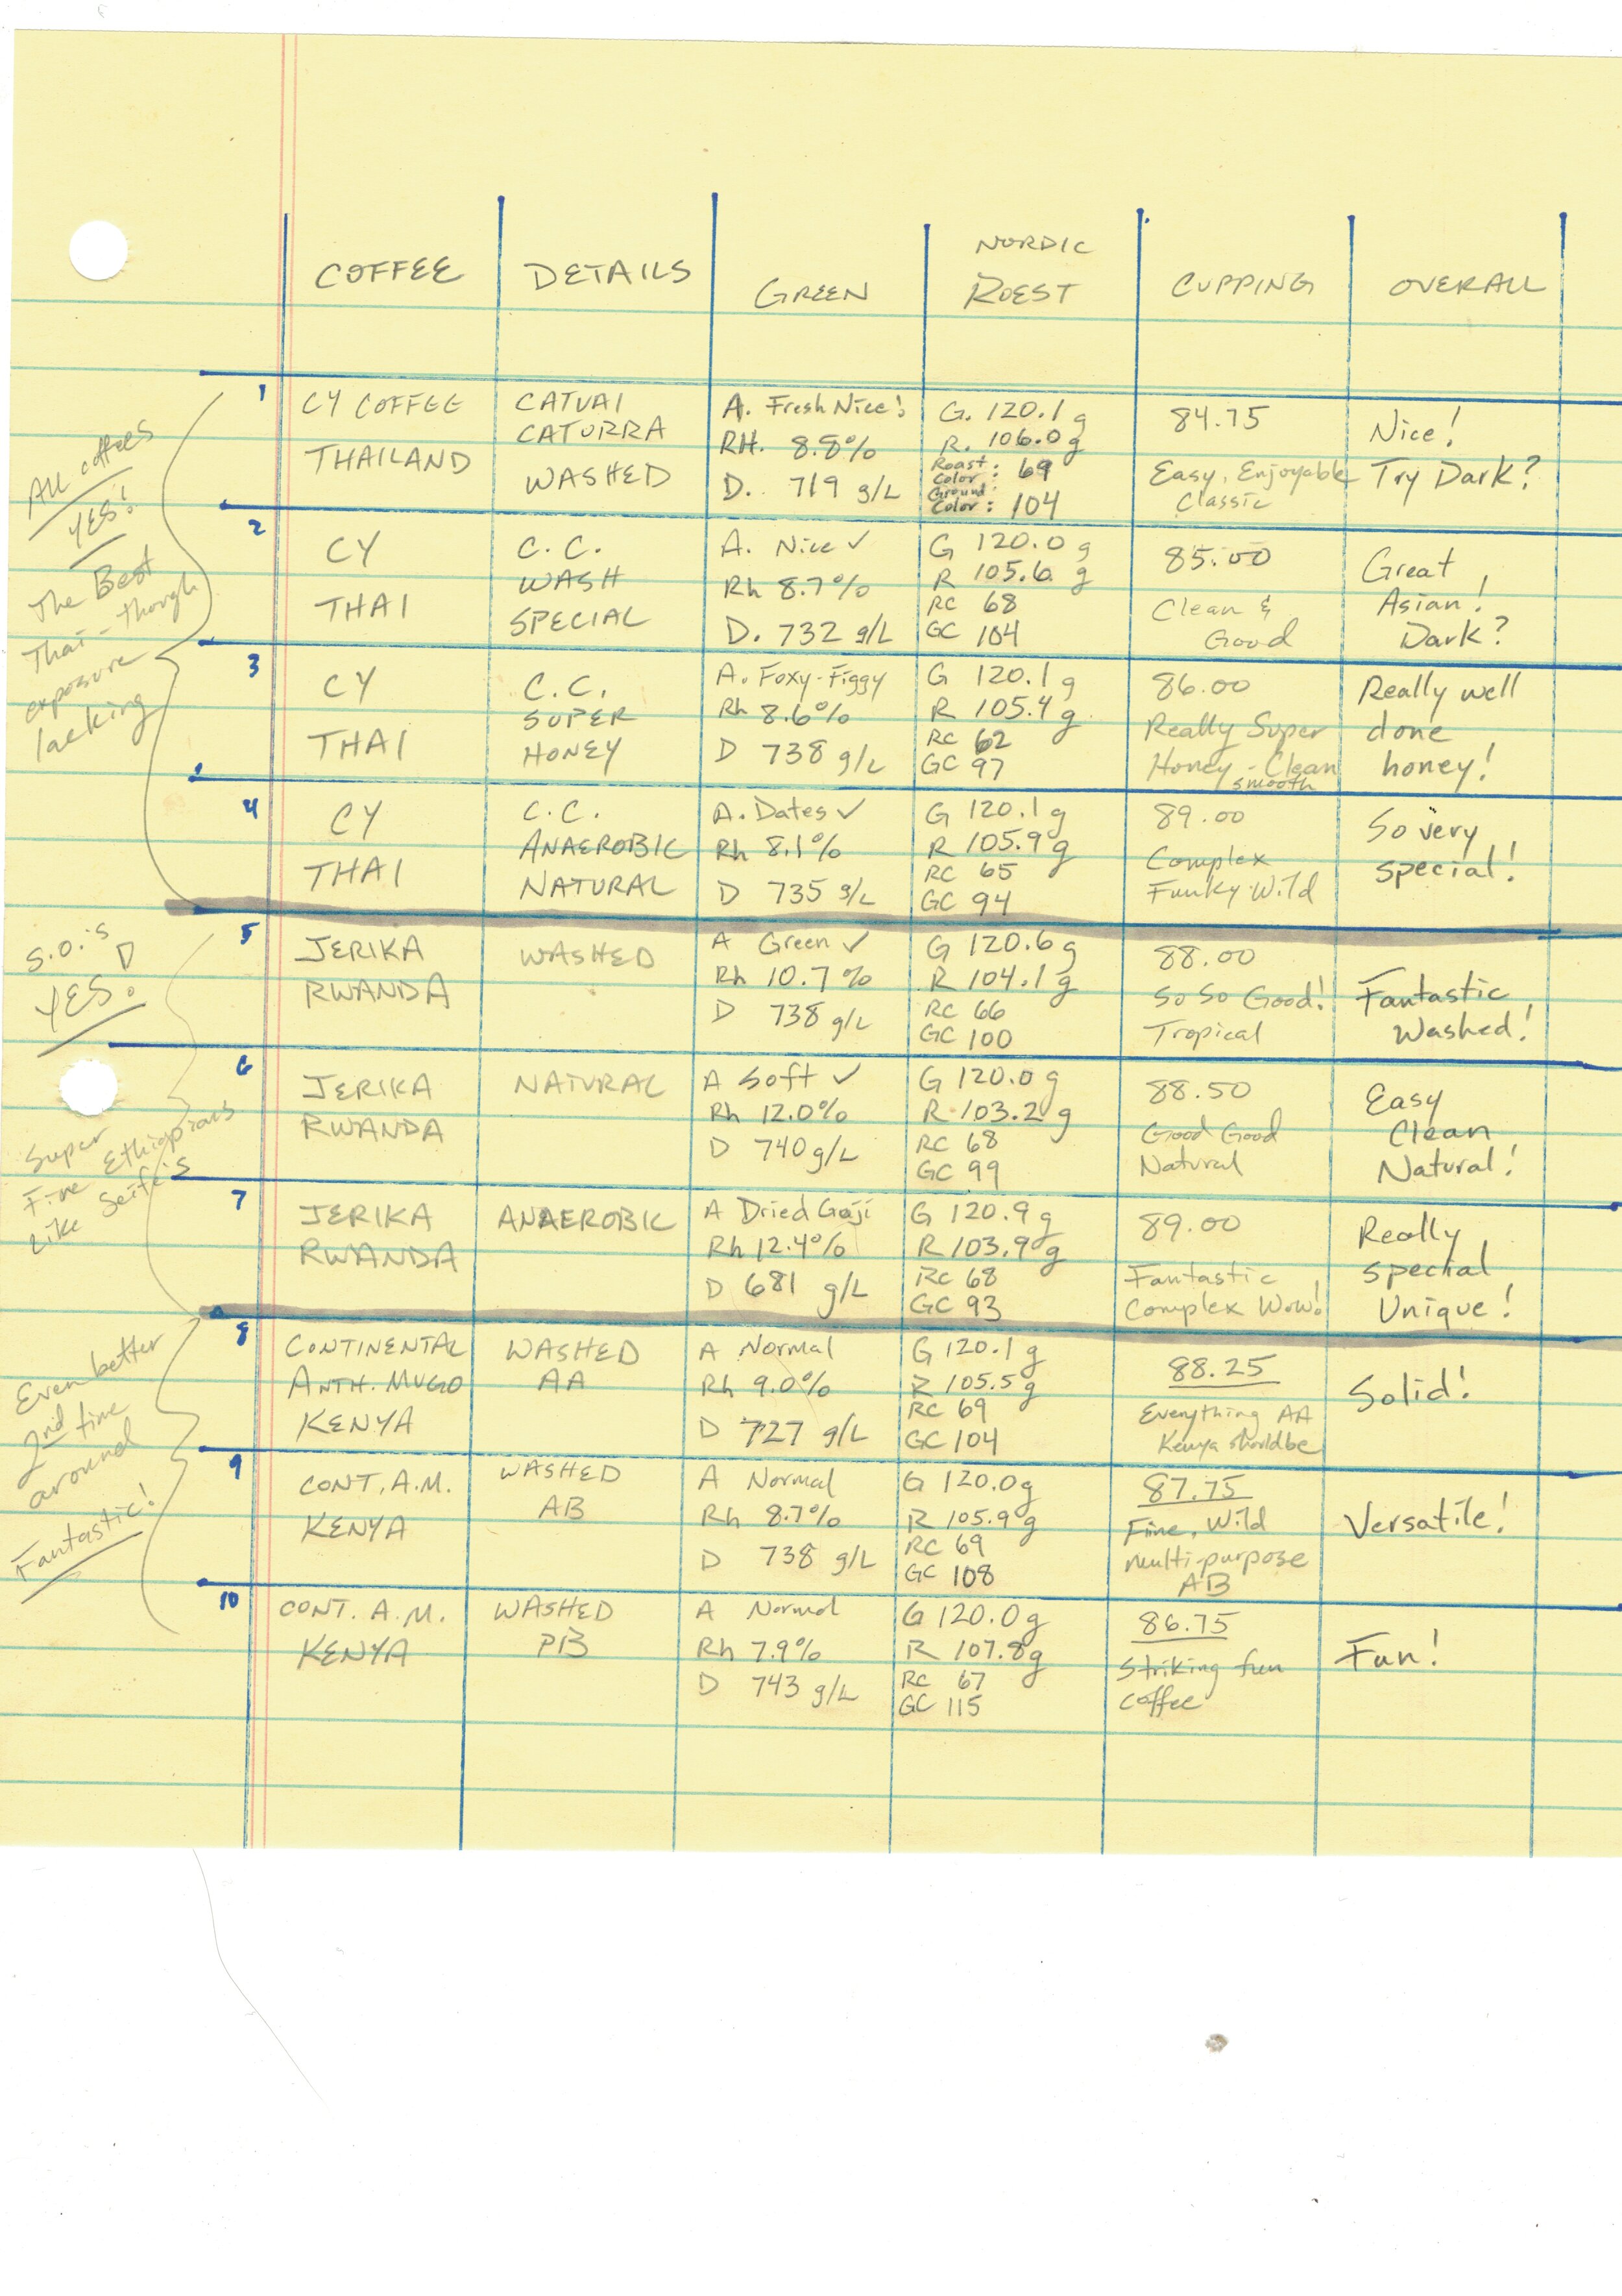 COFFEE
DETAILS
GREEN
NORDIC
ROEST
CUPPING
OVERALL
All coffees
YES!
The Best
Thai - though
exposure
lacking
1
CY COFFEE
THAILAND
CATUAI
CATURRA
WASHED
A. Fresh Nice!
RH. 8.8%
D. 719 g/L
G. 120.1 g
R. 106.0 g
Roast Color: 69
Ground Color: 104
84.75
Easy, Enjoyable
Classic
Nice!
Try Dark?
2
CY
THAI
C.C.
WASH
SPECIAL
A. Nice ✓
Rh 8.7%
D. 732 g/L
G 120.0 g
R 105.6 g
RC 68
GC 104
85.00
Clean &
Good
Great
Asian!
Dark?
3
CY
THAI
C.C.
SUPER
HONEY
A. Foxy-Figgy
Rh 8.6%
D 738 g/L
G 120.1 g
R 105.4 g
RC 62
GC 97
86.00
Really Super
Honey - Clean
smooth
Really well
done
honey!
4
CY
THAI
C.C.
ANAEROBIC
NATURAL
A. Dates ✓
Rh 8.1%
D 735 g/L
G 120.1 g
R 105.9 g
RC 65
GC 94
89.00
Complex
Funky Wild
So very
special!
S.O.'s
YES!
Super
Fine Ethiopians
Like Seife's
5
JERIKA
RWANDA
WASHED
A Green ✓
Rh 10.7%
D 738 g/L
G 120.6 g
R 104.1 g
RC 66
GC 100
88.00
So So Good!
Tropical
Fantastic
Washed!
6
JERIKA
RWANDA
NATURAL
A Soft ✓
Rh 12.0%
D 740 g/L
G 120.0 g
R 103.2 g
RC 68
GC 99
88.50
Good Good
Natural
Easy
Clean
Natural!
7
JERIKA
RWANDA
ANAEROBIC
A Dried Goji
Rh 12.4%
D 681 g/L
G 120.9 g
R 103.9 g
RC 68
GC 93
89.00
Fantastic
Complex Wow!
Really
special
Unique!
Even better
2nd time
around
Fantastic!
8
CONTINENTAL
ANTH. MUGO
KENYA
WASHED
AA
A Normal
Rh 9.0%
D 727 g/L
G 120.1 g
R 105.5 g
RC 69
GC 104
88.25
Everything AA
Kenya should be
Solid!
9
CONT. A.M.
KENYA
WASHED
AB
A Normal
Rh 8.7%
D 738 g/L
G 120.0 g
R 105.9 g
RC 69
GC 108
87.75
Fine, Wild
multi-purpose
AB
Versatile!
10
CONT. A.M.
KENYA
WASHED
PB
A Normal
Rh 7.9%
D 743 g/L
G 120.0 g
R 107.8 g
RC 67
GC 115
86.75
Striking fun
coffee
Fun!